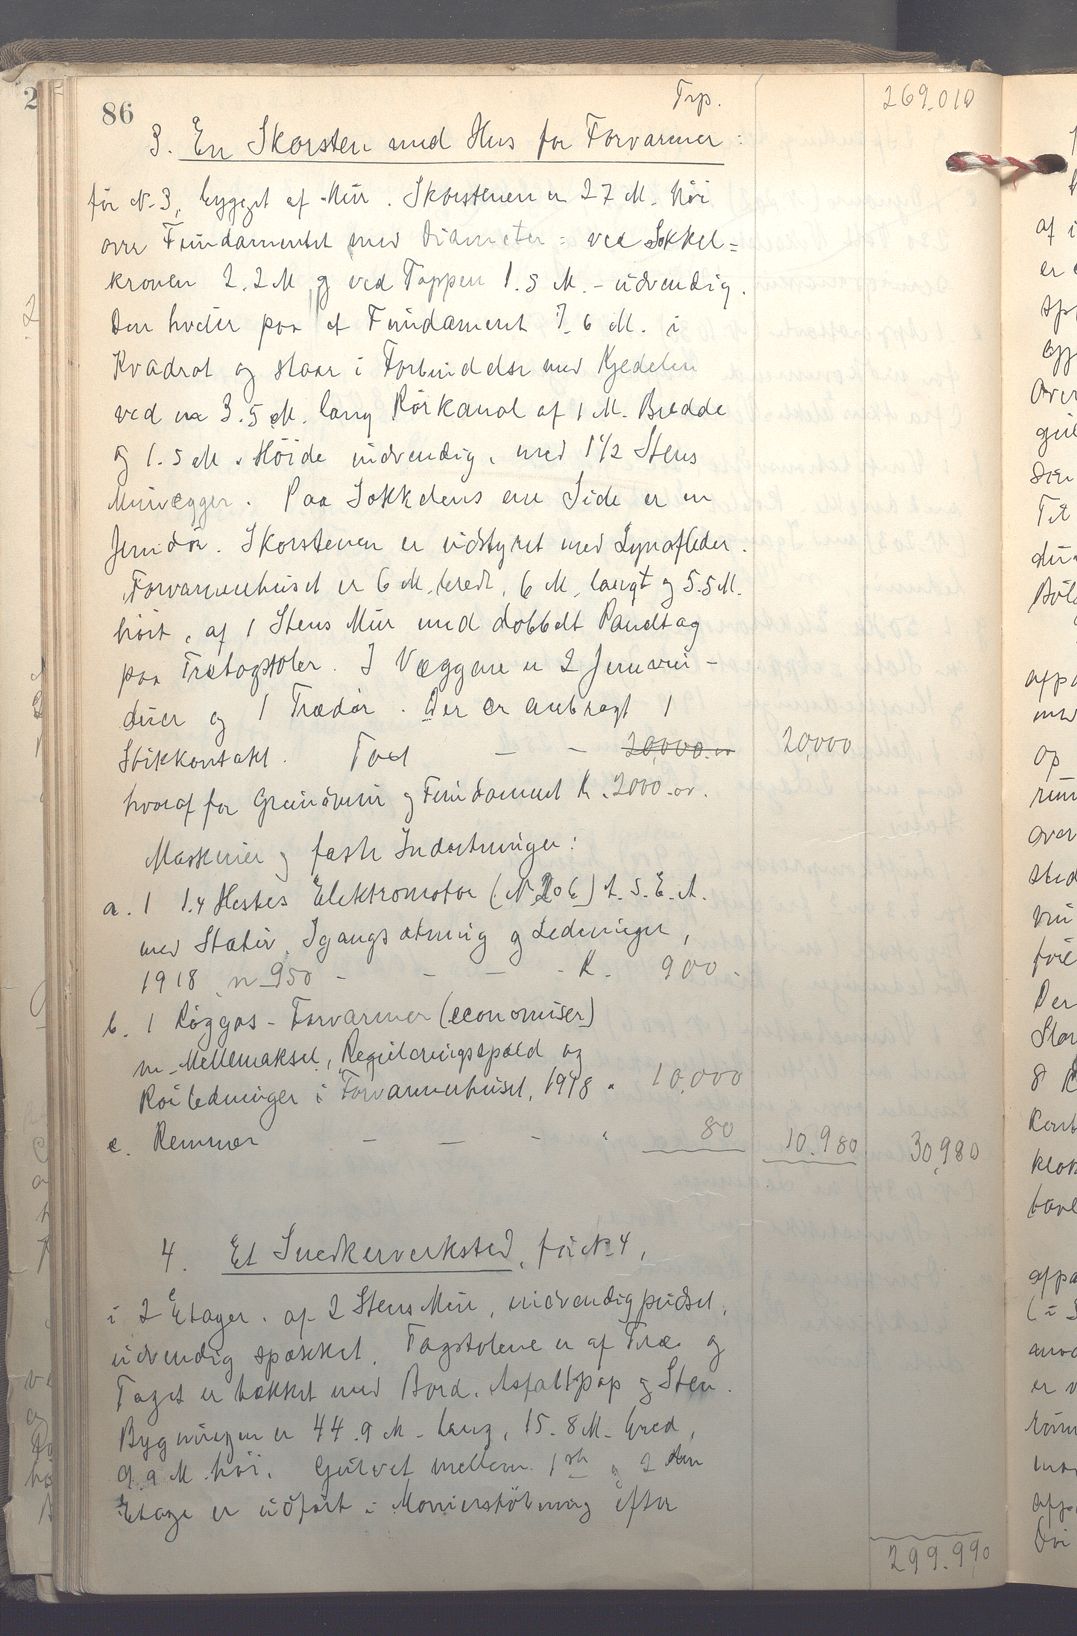 86
Trp. 269.010
3. En Skorsten med Hus for Forvarmer :
för N. 3, bygget af Mur. Skorstenen er 27 M. höi
over Fundamentet med Diameter = ved Sokkel=
kronen 2.2 M og ved Toppen 1.5 M. - udvendig.
Den hviler paa et Fundament 7.6 M. i
Kvadrat og staar i Forbindelse med Kjedelen
ved en 3.5 M. lang Rörkanal af 1 M. Bredde
og 1.5 M. Höide indvendig, med 1 1/2 Stens
Murvægger. Paa Sokkelens ene Side er en
Jerndör. Skorstenen er udstyret med Lynafleder.
Forvarmerhuset er 6 M. bredt, 6 M. langt og 5.5 M.
höit, af 1 Stens Mur med dobbelt Paneltag
paa Trætagstoler. I Væggene er 2 Jernvin-
duer og 1 Trædör. Der er anbragt 1
Stikkontakt. Taxt — — 20,000.00 20,000
hvoraf for Grundmur og Fundament K. 2000.00.
Maskiner og faste Indretninger:
a. 1 1.4 Hestes Elektromotor (N. 206) A.S.E.A.
med Stativ, Igangsætning og Ledninger,
1918 n 950 - - - - K. 900.-
b. 1 Röggas-Forvarmer (economiser)
m. Mellemaksel, Reguleringsspæld og
Rörledninger i Forvarmerhuset, 1918 " 10,000
c. Remmer — — - " 80 10.980 30,980
4. Et Snedkerverksted, för N. 4,
i 2 Etager. af 2 Stens Mur, indvendig pudset,
udvendig spækket. Tagstolene er af Træ og
Taget er tækket med Bord, Asfaltpap og Sten.
Bygningen er 44.9 M. lang, 15.8 M. bred,
9.9 M. höi. Gulvet mellem 1ste og 2den
Etage er udfört i Monierstöbning efter
299.990